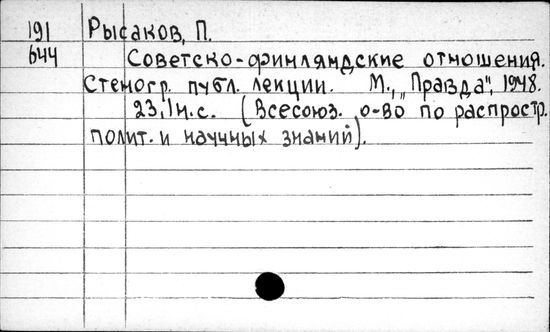 191 Рысаков, П.
644 Советско-финляндские отношения.
Стеногр. публ. лекции. М., "Правда", 1948.
23, 1 н.с. (Всесоюз. о-во по распростр.
полит. и научных знаний).